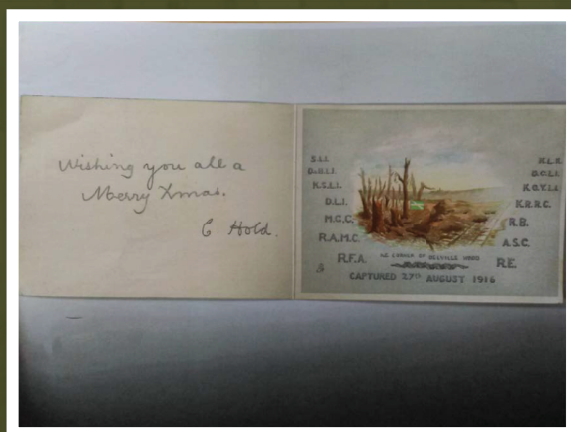 Wishing you all a
Merry Xmas.
C Hold.
S.L.I.
D.C.L.I.
K.S.L.I.
D.L.I.
M.G.C.
R.A.M.C.
R.F.A.
K.O.Y.L.I.
K.R.R.C.
R.B.
A.S.C.
R.E.
N.E. CORNER OF DELVILLE WOOD
CAPTURED 27TH AUGUST 1916